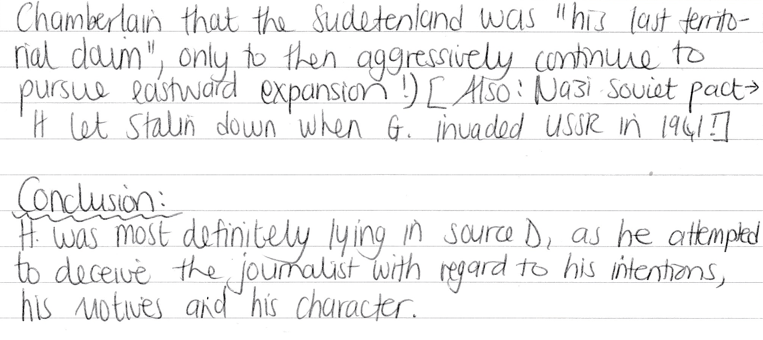 Chamberlain that the Sudetenland was "his last territo-
rial claim", only to then aggressively continue to
pursue eastward expansion!) [Also: Nazi Soviet pact→
H let Stalin down when G. invaded USSR in 1941!]
Conclusion:
H. was most definitely lying in source D, as he attempted
to deceive the journalist with regard to his intentions,
his motives and his character.